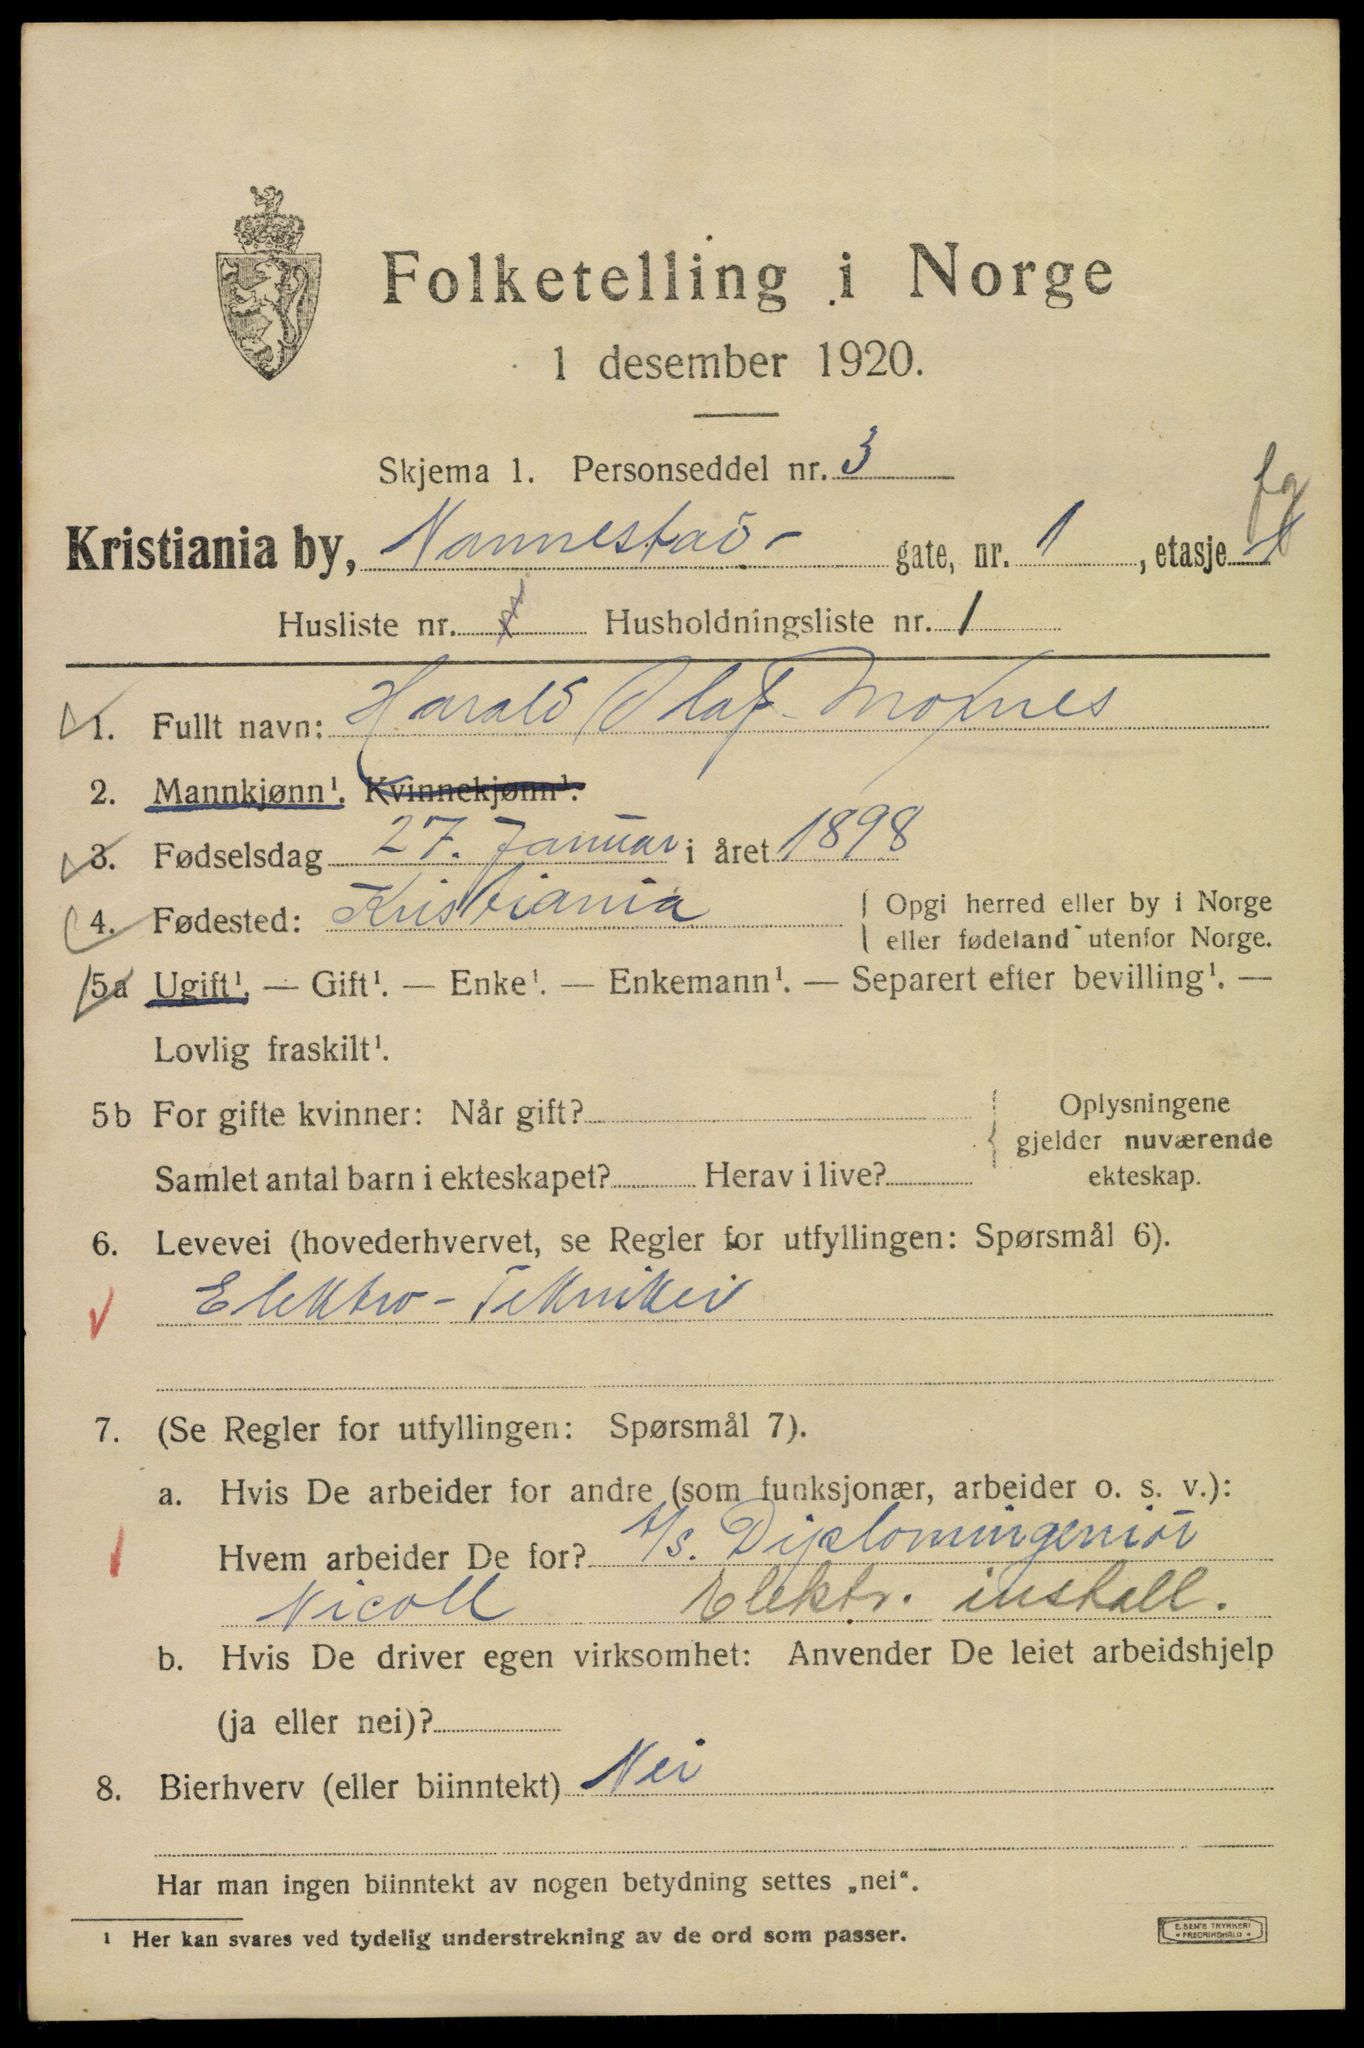 Folketelling i Norge
1 desember 1920.
Skjema 1. Personseddel nr. 3
Kristiania by, Nannestad- gate, nr. 1, etasje 1
Husliste nr. 1 Husholdningsliste nr. 1
1. Fullt navn: Harald Olaf
2. Mannkjønn¹. Kvinnekjønn¹.
3. Fødselsdag 27. Januar i året 1898
4. Fødested: Kristiania Opgi herred eller by i Norge
eller fødeland utenfor Norge.
5a Ugift¹. — Gift¹. — Enke¹. — Enkemann¹. — Separert efter bevilling¹. —
Lovlig fraskilt¹.
5b For gifte kvinner: Når gift? Oplysningene
gjelder nuværende
Samlet antal barn i ekteskapet? Herav i live? ekteskap.
6. Levevei (hovederhvervet, se Regler for utfyllingen: Spørsmål 6).
Elektro-Tekniker
7. (Se Regler for utfyllingen: Spørsmål 7).
a. Hvis De arbeider for andre (som funksjonær, arbeider o. s. v.):
Hvem arbeider De for? A/s. Diplomingeniør
Nicoll Elektr. install.
b. Hvis De driver egen virksomhet: Anvender De leiet arbeidshjelp
(ja eller nei)?
8. Bierhverv (eller biinntekt) Nei
Har man ingen biinntekt av nogen betydning settes „nei“.
¹ Her kan svares ved tydelig understrekning av de ord som passer.
E. SEM'S TRYKKERI
FREDRIKSHALD